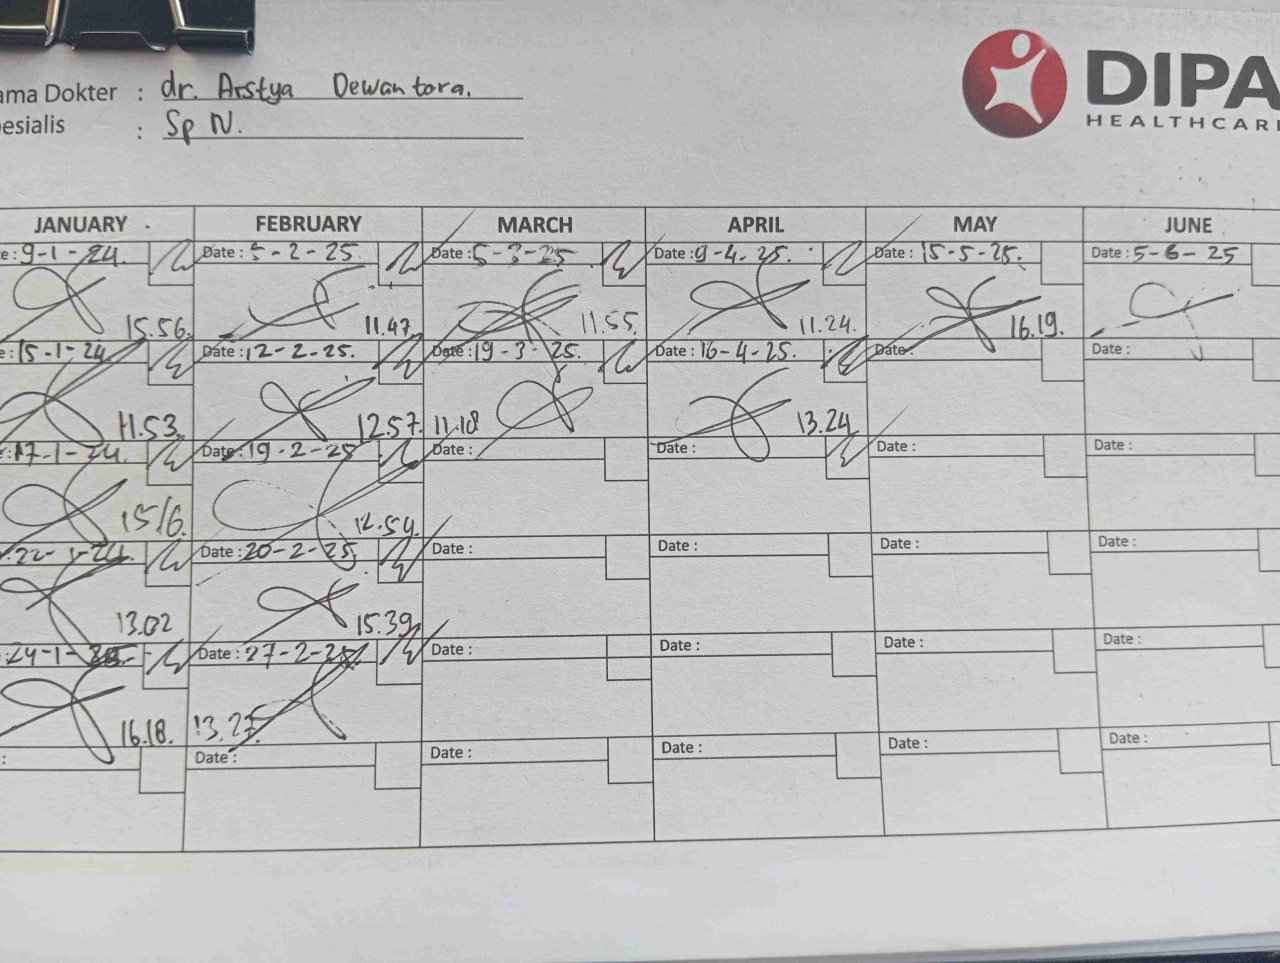 ama Dokter : dr. Arstya Dewantora.
esialis : Sp N.
DIPA
HEALTHCARE
JANUARY FEBRUARY MARCH APRIL MAY JUNE
e: 9-1-24. Date: 5-2-25. Date: 5-3-25 Date: 9-4.25. Date: 15-5-25. Date: 5-6-25
15.56. 11.47. 11.55 11.24. 16.19.
e: 15-1-24 Date: 12-2-25. Date: 19-3-25. Date: 16-4-25. Date: Date:
11.53. 12.57. 11.18 13.24
: 17-1-24. Date: 19-2-25 Date: Date: Date: Date:
15/6. 12.54.
22-1-24. Date: 20-2-25 Date: Date: Date: Date:
13.02 15.39
24-1- Date: 27-2-25 Date: Date: Date: Date:
16.18. 13.27.
: Date: Date: Date: Date: Date: